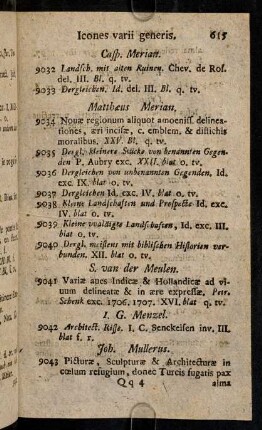 Icones varii generis. 615
Casp. Merian.
9032 Landsch. mit alten Ruinen. Chev. de Rof.
del. III. Bl. q. tv.
9033 Dergleichen. Id. del. III. Bl. q. tv.
Matthæus Merian.
9034 Novæ regionum aliquot amœniss. delinea-
tiones, æri incisæ, c. emblem. & distichis
moralibus. XXV. Bl. q. tv.
9035 Dergl. kleinere Stücke von benannten Gegen-
den P. Aubry exc. XXII. blat o. tv.
9036 Dergleichen von unbenannten Gegenden, Id.
exc. IX. blat o. tv.
9037 Dergleichen Id. exc. IV. blat o. tv.
9038 Kleine Landschafften und Prospecte Id. exc.
IV. blat o. tv.
9039 Kleine vvaldigte Landschafften, Id. exc. III.
blat o. tv.
9040 Dergl. meistens mit biblischen Historien ver-
bunden. XII. blat o. tv.
S. van der Meulen.
9041 Variæ aves Indicæ & Hollandicæ ad vi-
vum delineatæ & in ære expressæ, Petr.
Schenk exc. 1706. 1707. XVI. blat q. tv.
I. G. Menzel.
9042 Architect. Risse. I. C. Senckeisen inv. III.
blat f. r.
Joh. Mullerus.
9043 Picturæ, Sculpturæ & Architecturæ in
cœlum refugium, donec Turcis fugatis pax
Qq 4 alma